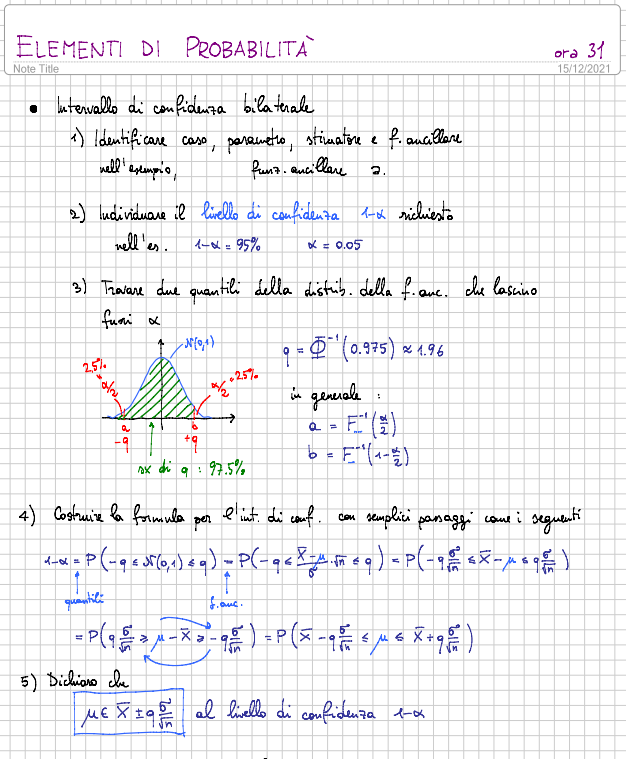 ELEMENTI DI PROBABILITÀ ora 31
Note Title 15/12/2021
• Intervallo di confidenza bilaterale
1) Identificare caso, parametro, stimatore e f. ancillare
nell'esempio, funz. ancillare 2.
2) Individuare il livello di confidenza 1-α richiesto
nell'es. 1-α = 95% α = 0.05
3) Trovare due quantili della distrib. della f. anc. che lascino
fuori α
N(0,1)
2.5% = α/2
α/2 = 2.5%
q = Φ⁻¹(0.975) ≈ 1.96
in generale :
a b
-q +q
a = F⁻¹(α/2)
b = F⁻¹(1-α/2)
sx di q : 97.5%
4) Costruire la formula per l'int. di conf. con semplici passaggi come i seguenti
1-α = P(-q ≤ N(0,1) ≤ q) = P(-q ≤ (X̄-μ)/σ · √n ≤ q) = P(-q σ/√n ≤ X̄-μ ≤ q σ/√n)
quantili f. anc.
= P(q σ/√n ≥ μ-X̄ ≥ -q σ/√n) = P(X̄ - q σ/√n ≤ μ ≤ X̄ + q σ/√n)
5) Dichiaro che
μ ∈ X̄ ± q σ/√n al livello di confidenza 1-α